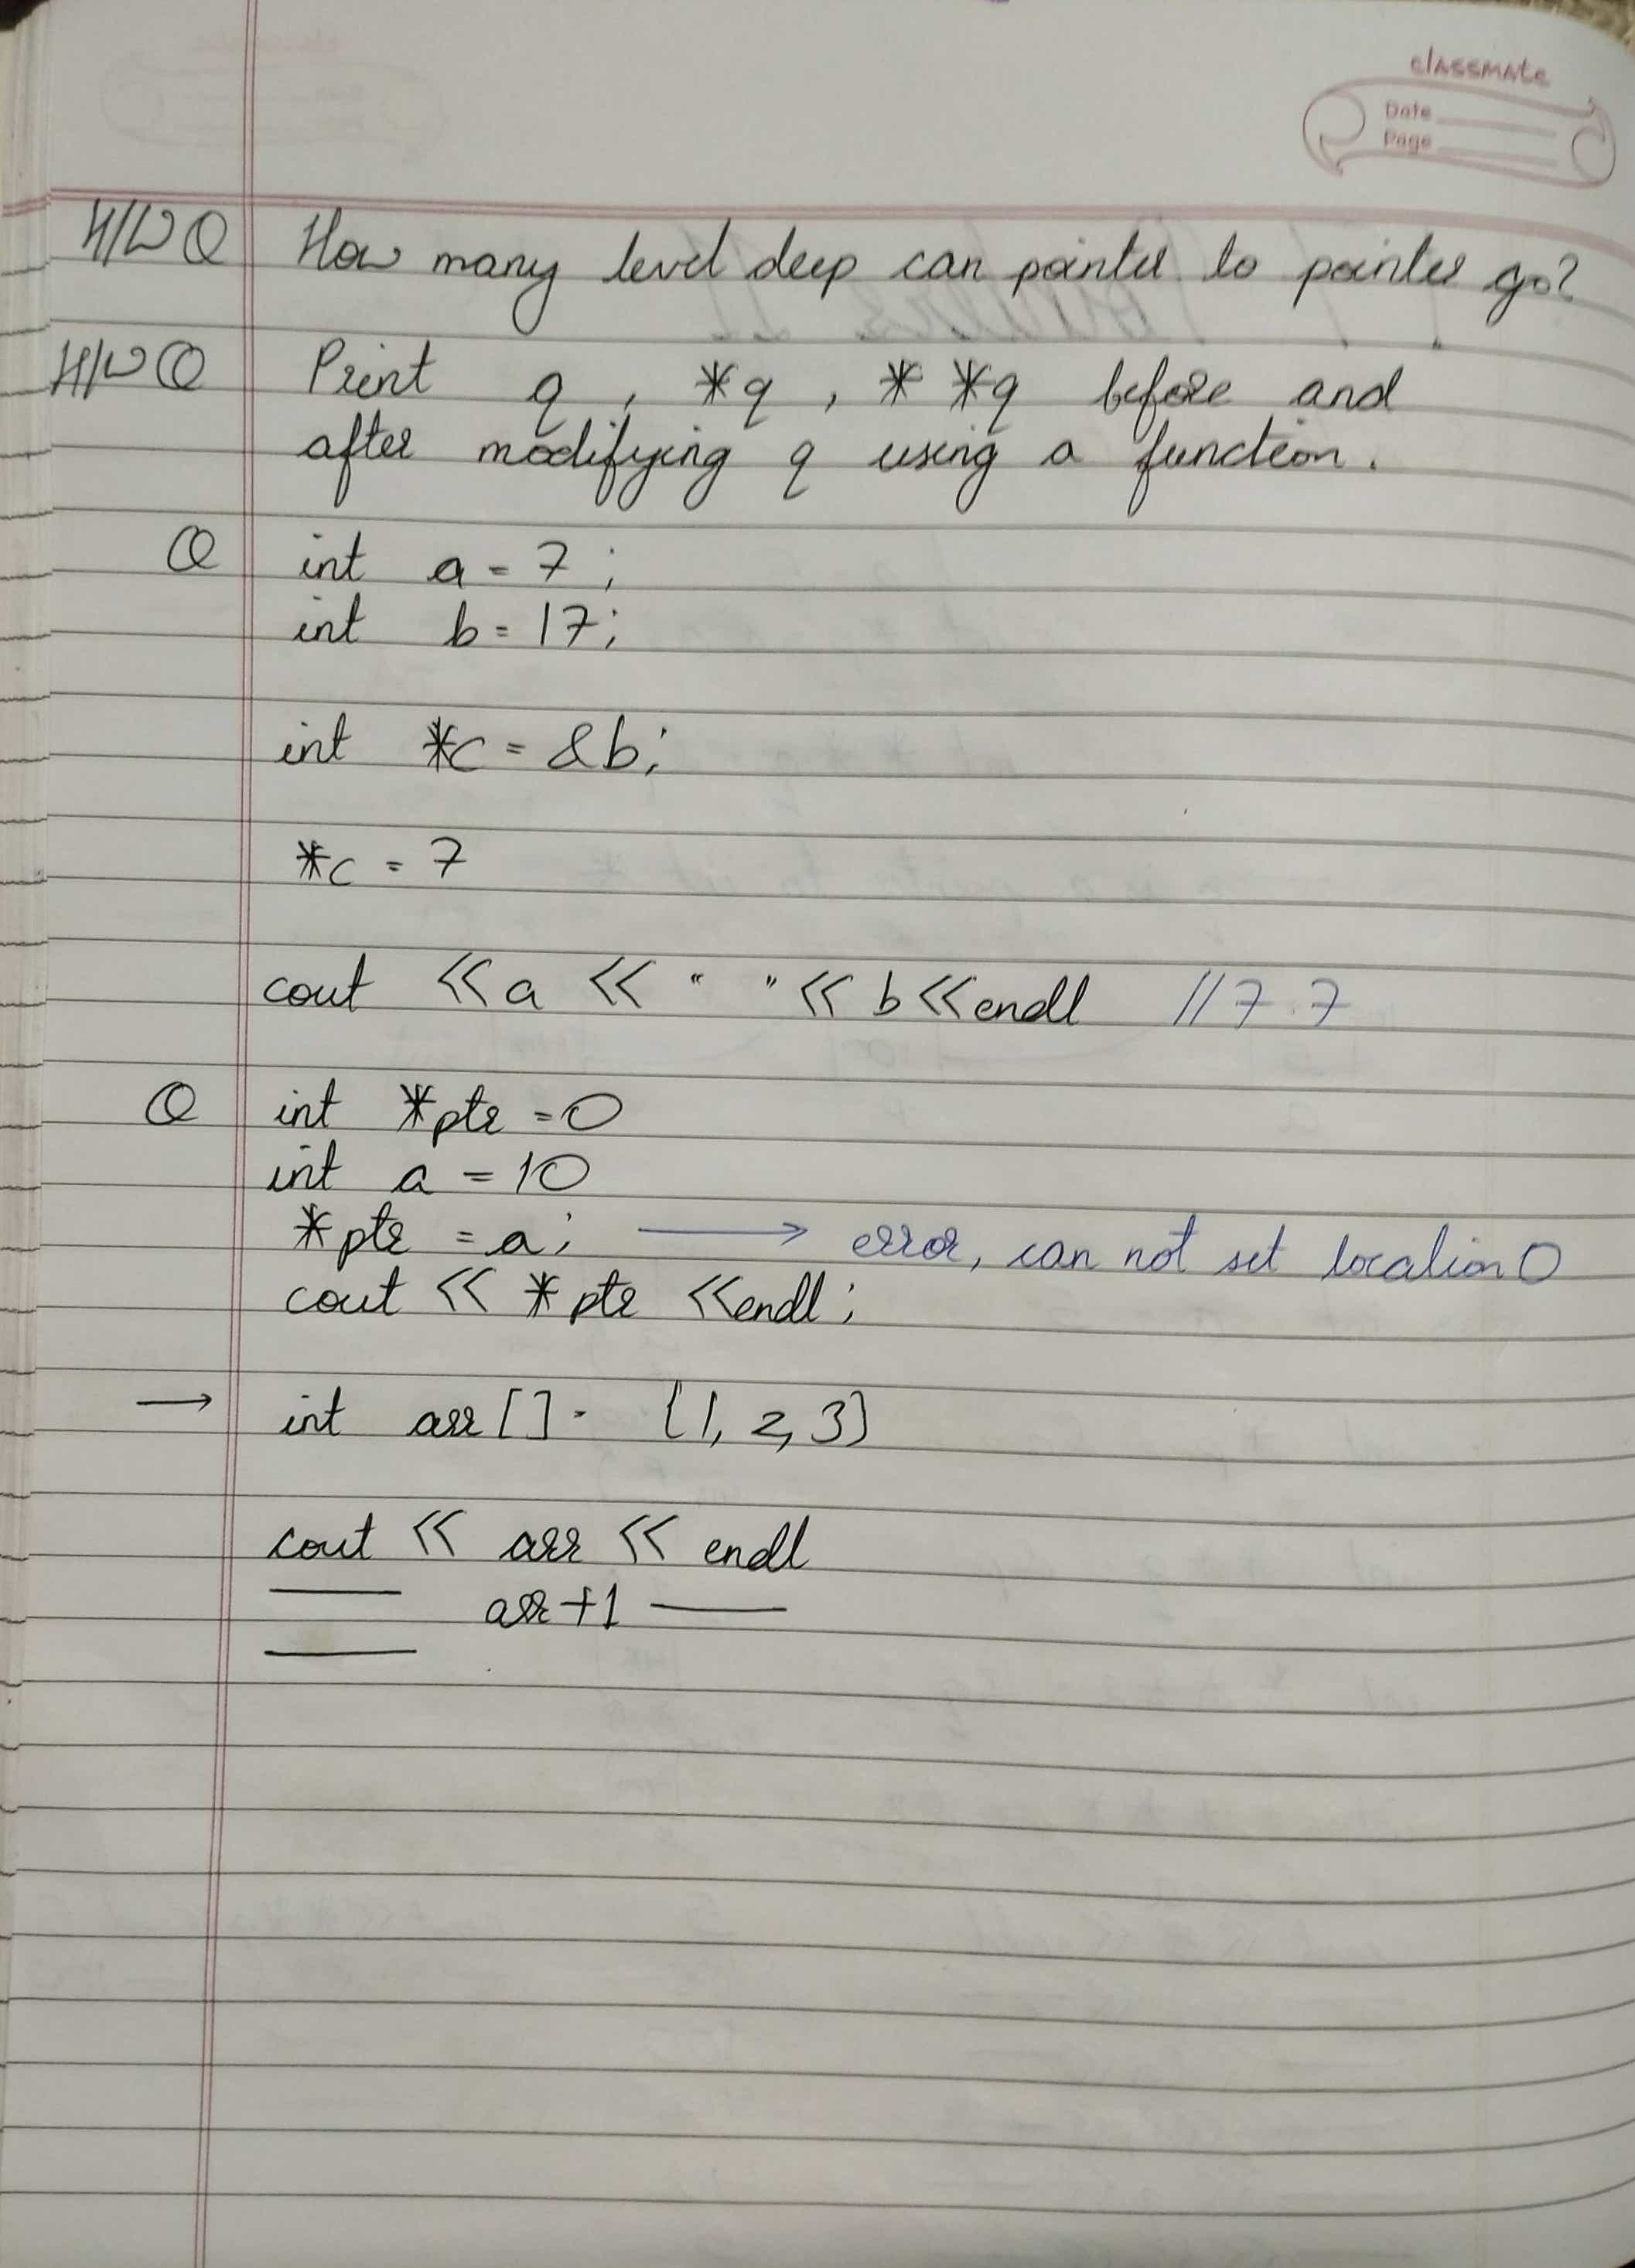 classmate
Date
Page
H/W Q How many level deep can pointer to pointer go?
H/W Q Print q , *q , * *q before and
after modifying q using a function.
Q int a = 7 ;
int b = 17;
int *c = &b;
*c = 7
cout << a << " " << b << endl //7 7
Q int *ptr = 0
int a = 10
*ptr = a; → error, can not set location 0
cout << *ptr << endl ;
→ int arr [ ] = {1, 2, 3}
cout << arr << endl
—— arr+1 ——
——